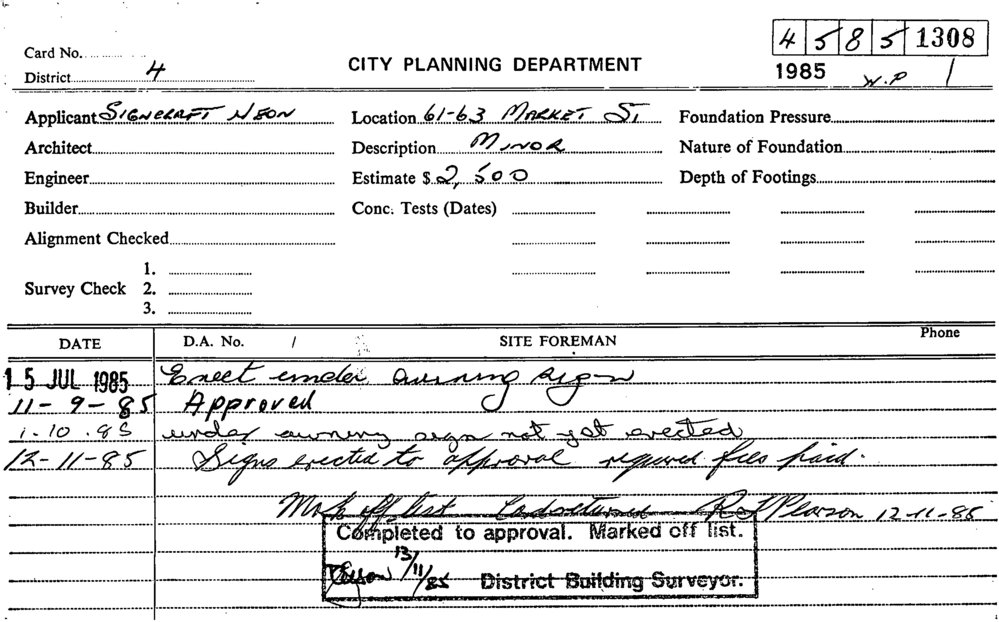 4 5 8 5 1308
Card No.
CITY PLANNING DEPARTMENT
District 4
1985 W.P 1
Applicant SIGNCRAFT NEON Location 61-63 MARKET ST Foundation Pressure
Architect Description MINOR Nature of Foundation
Engineer Estimate $ 2,500 Depth of Footings
Builder Conc. Tests (Dates)
Alignment Checked
1.
Survey Check 2.
3.
DATE D.A. No. / SITE FOREMAN Phone
15 JUL 1985 Erect under awning sign
11-9-85 Approved
1.10.85 under awning sign not yet erected
12-11-85 Signs erected to approval required fees paid.
Mark off list Card returned Pearson 12-11-85
Completed to approval. Marked off list.
13/11/85 District Building Surveyor.